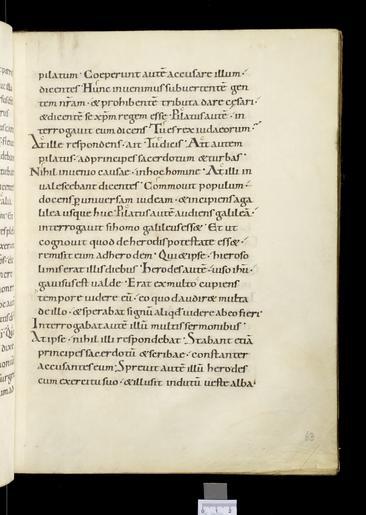 pilatum. Coeperunt autē accusare illum.
dicentes. Hunc invenimus subvertentē gen
tem nr̄am. & prohibentē tributa dare cesari.
& dicentē se xp̄m regem esse. Pilatus autē. in
terrogavit eum dicens. Tu es rex iudaeorum.
At ille respondens. ait. Tu dicis. Ait autem
pilatus. ad principes sacerdotum & turbas.
Nihil invenio causae. in hoc homine. At illi in
valescebant dicentes. Commovit populum.
docens p universam iudeam. & incipiens aga
lilea usque huc. Pilatus autē audiens galileā.
interrogavit si homo galileus ess&. Et ut
cognovit quod de herodis potestate ess&.
remisit eum ad herodem. Qui & ipse. hieroso
limis erat illis diebus. Herodes autē. viso ihū.
gavisus est valde. Erat ex multo cupiens
tempore videre eū. eo quod audir& multa
de illo. & sperabat signū aliqd videre ab eo fieri.
Interrogabat autē illū multis sermonibus.
At ipse. nihil illi respondebat. Stabant etiā
principes sacerdotū & scribae. constanter
accusantes eum. Sprevit autē illū herodes
cum exercitu suo. & illusit indutū veste alba.
63